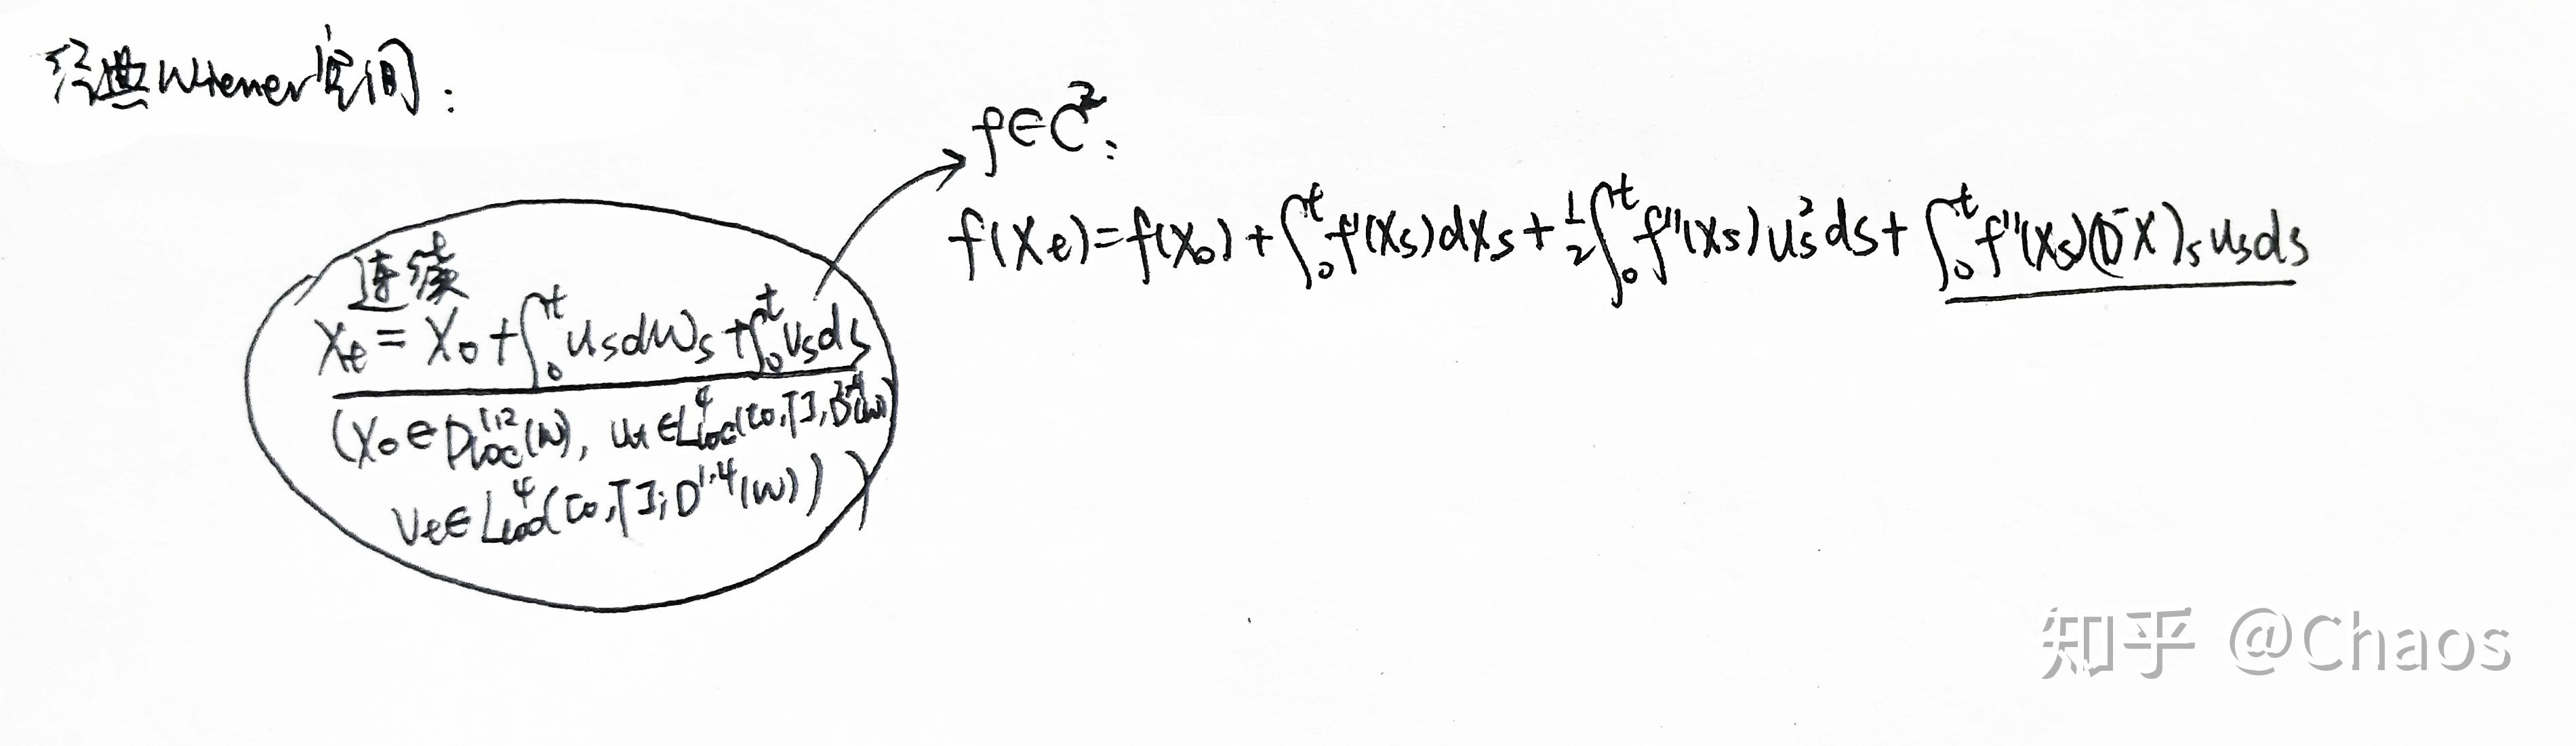 经典Wiener空间:
f∈C²:
f(Xt)=f(X0)+∫₀ᵗf'(Xs)dXs+½∫₀ᵗf''(Xs)us²ds+∫₀ᵗf''(Xs)(D⁻X)s us ds
连续
Xt=X0+∫₀ᵗus dWs+∫₀ᵗvs ds
(X0∈D^{1,2}_{loc}(W), ut∈L⁴_{loc}([0,T];
vt∈L⁴_{loc}([0,T]; D^{1,4}(W)))
知乎 @Chaos